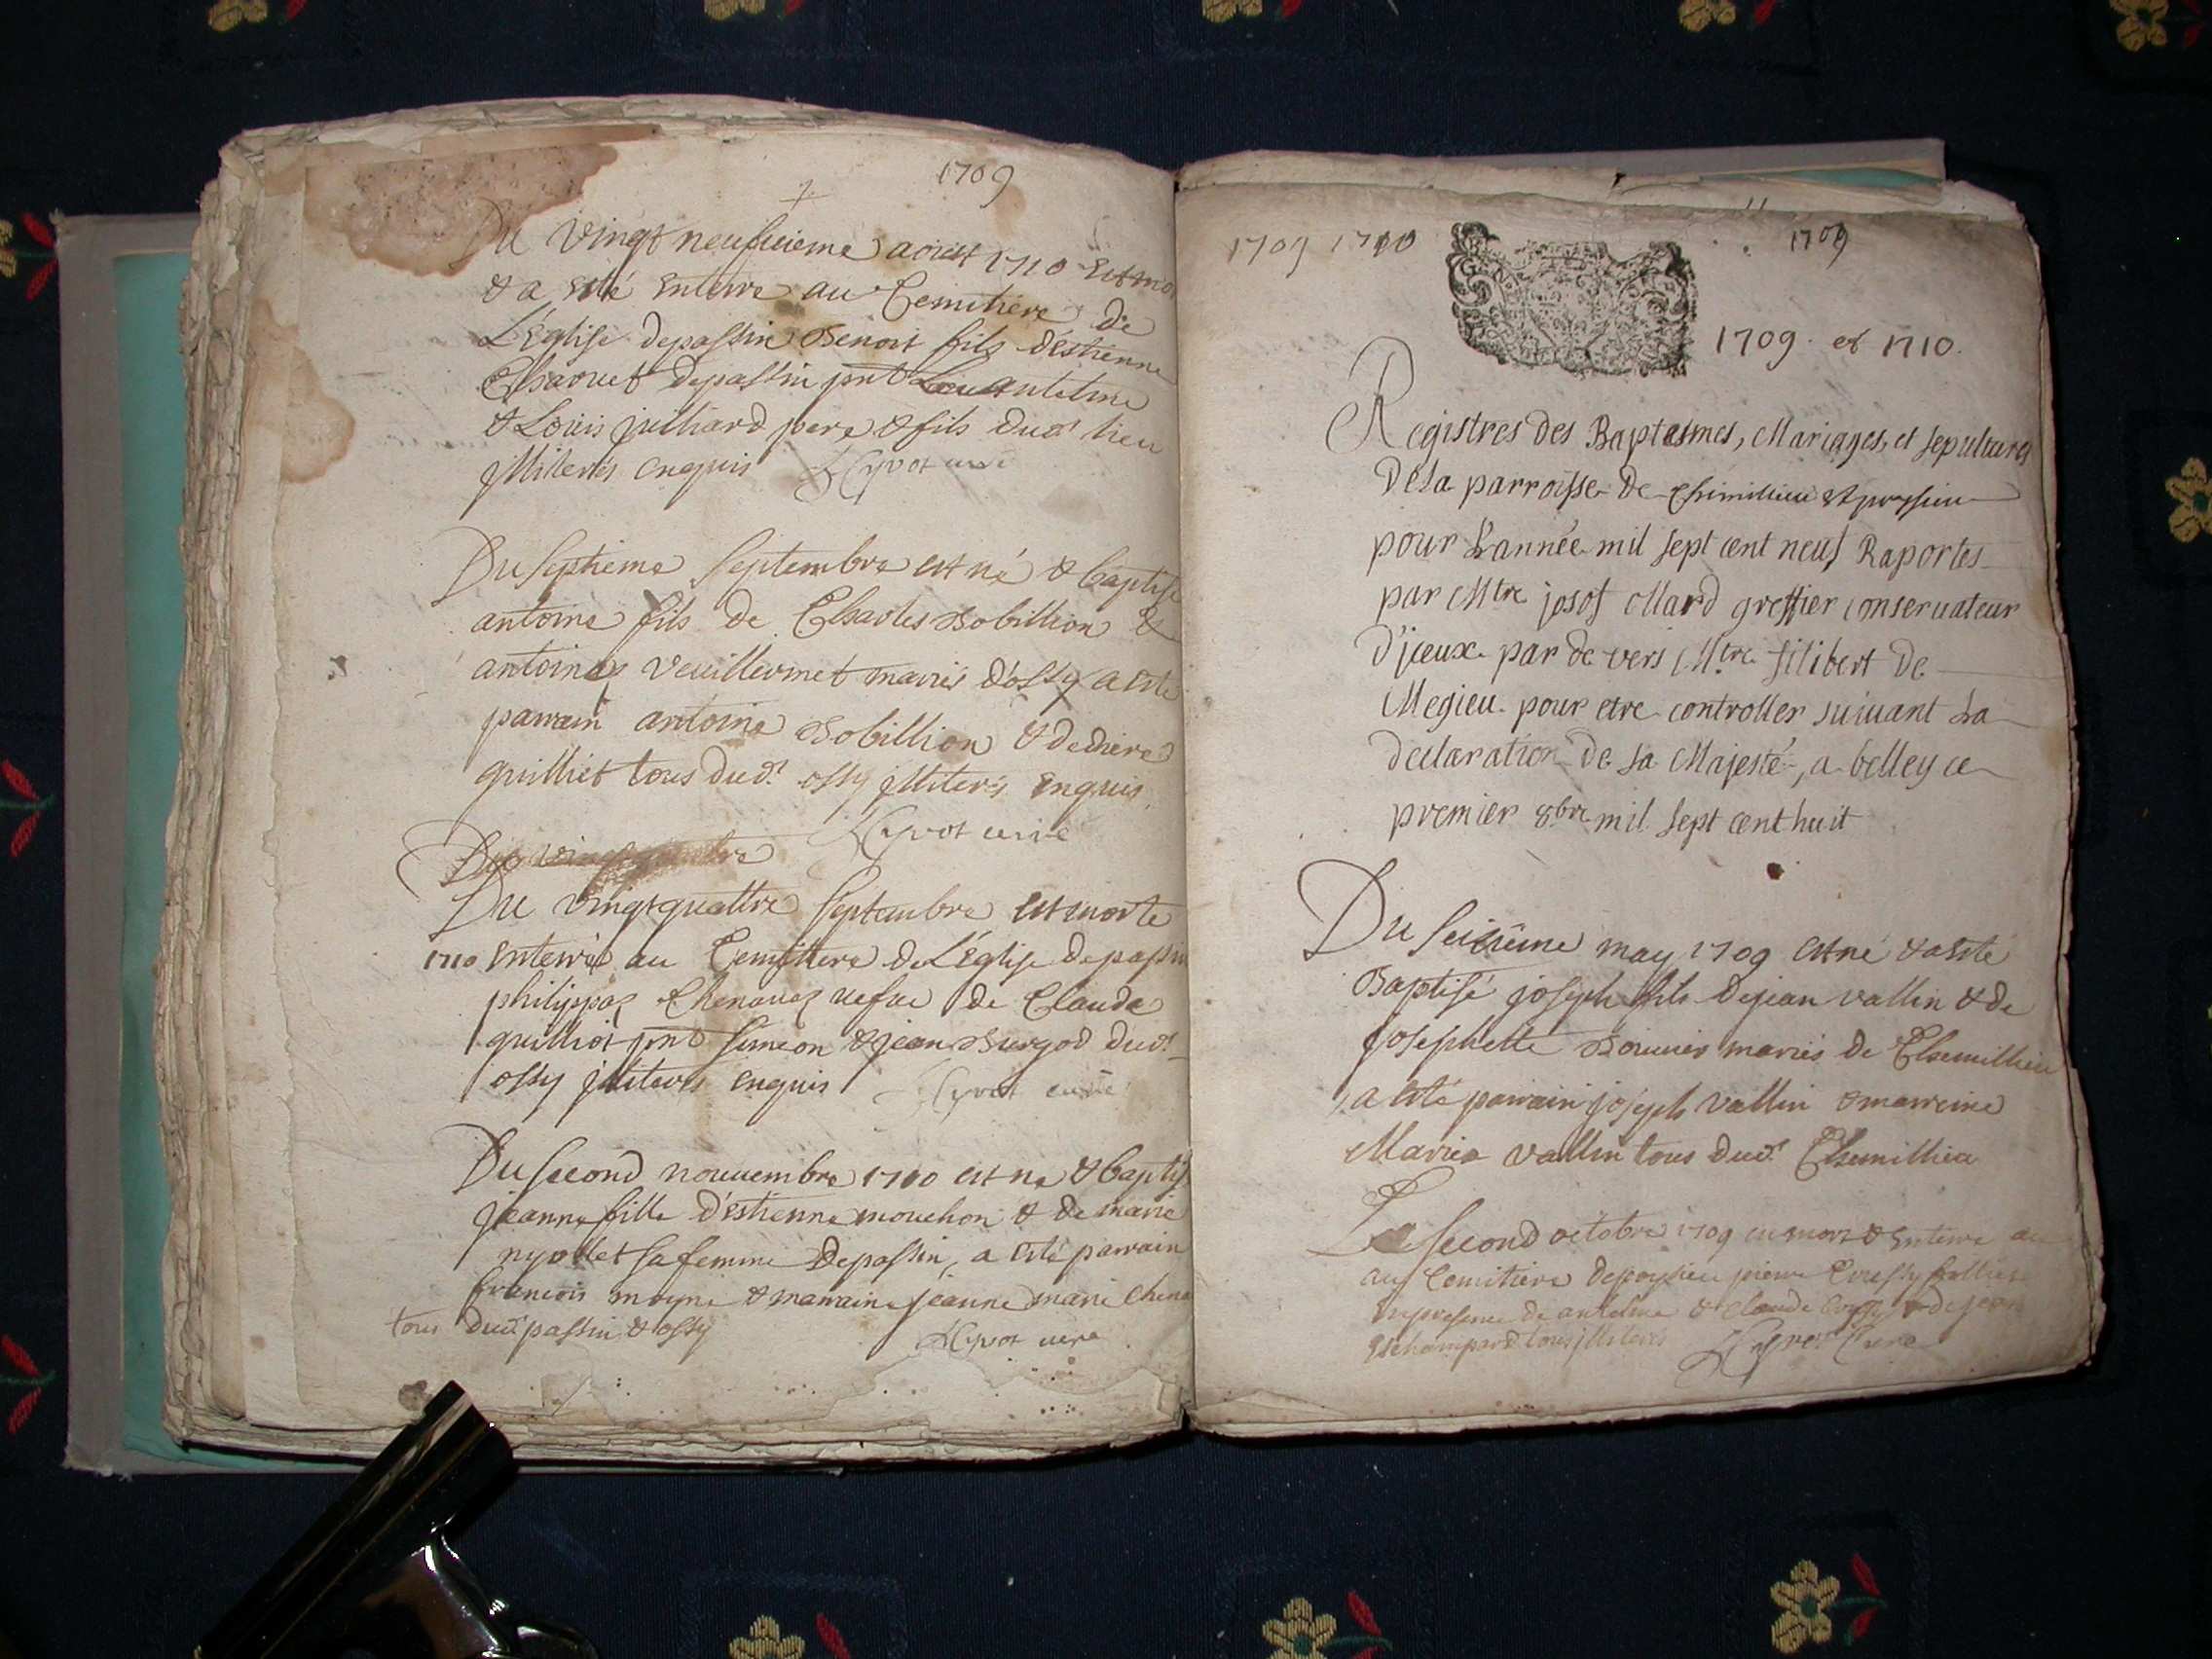 1709
Du vingt neufuieme aoust 1710 Est mo
& a esté Enterre au Cemitiere de
L'Église depassin Benoit fils d'éstienne
Depassin pnt antelme
& Loüis julliard pere & fils dud.t lieu
jlliterés enquis curé
Du septieme Septembre est né & baptise
antoine fils de Charles Bobillion &
antoinaz veuillermet mariés d'ossy a esté
parrain antoine Bobillion &
guilliet tous dud.t ossy jlliterés enquis
curé
Du
Du vingt quattre Septembre est morte
1710 Enterrée au Cemittere de L'Église de passin
philippaz Chenavaz vefue de Claude
guilliot pnt Simeon & jean Burgod dud.t
ossy jlliterés enquis curé
Du second nouuembre 1710 est ne & baptis
jeanne fille d'estienne mouchon & de marie
sa femme depassin, a esté parrain
francois moyne & marraine jeanne marie Chena
tous dud.t passin & ossy curé
1709 1710 1709
1709. et 1710.
Registres des Baptesmes, Mariages, et sepultures
De la parroisse de Chimillieu et poysieu
pour L'année mil sept cent neuf Raportés
par Mtre josef Mard greffier conseruateur
D'jceux par de vers Mtre filibert de
Megieu pour etre controller suiuant La
declaration de sa Majesté, a belley ce
premier 8bre mil sept cent huit
Du seizieme may 1709 est né & a esté
Baptisé joseph fils de jean vallin & de
josephette mariés de Chemillieu
a esté parrain joseph vallin & marreine
Marie vallin tous dud.t Chemillieu
Le second octobre 1709 est mort & Enterre au
au Cemitiere depoysieu pierre
En presence de antelme & Claude & de jean
tous jlliterés curé